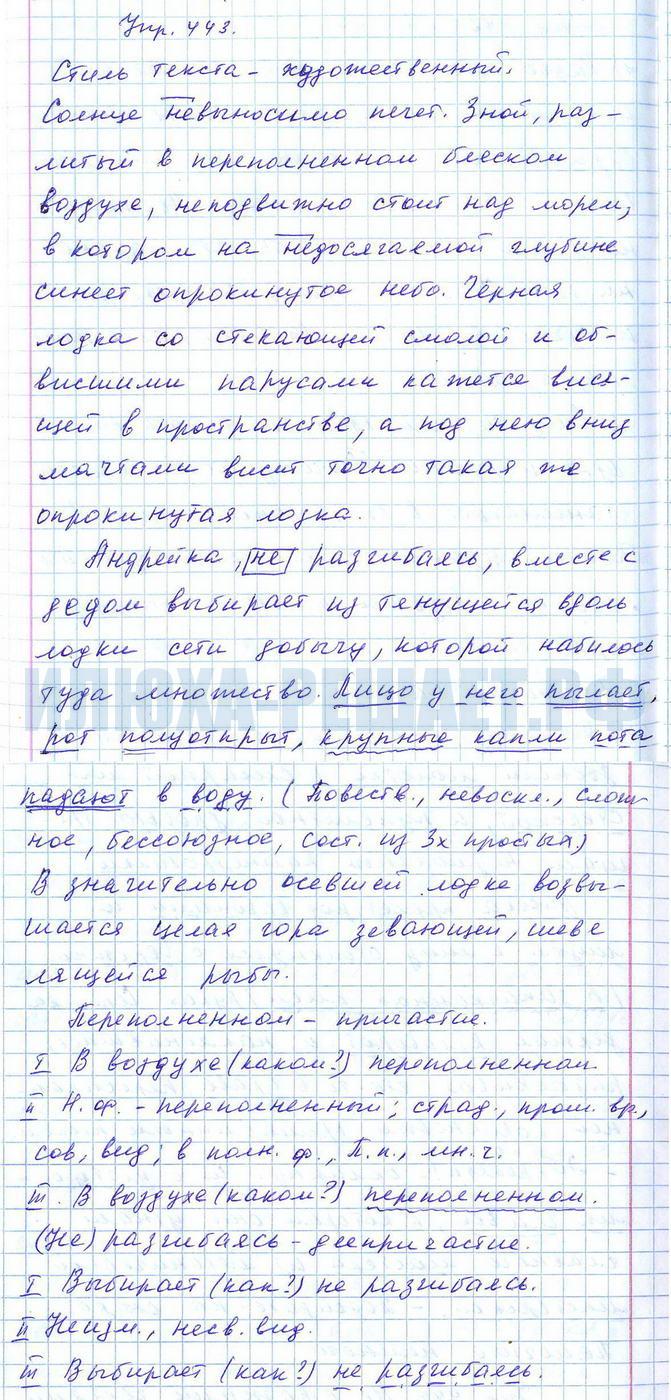 Упр. 443.
Стиль текста – художественный.
Солнце невыносимо печет. Зной, раз-
литый в переполненном блеском
воздухе, неподвижно стоит над морем,
в котором на недосягаемой глубине
синеет опрокинутое небо. Черная
лодка со стекающей смолой и об-
висшими парусами кажется вися-
щей в пространстве, а под нею вниз
мачтами висит точно такая же
опрокинутая лодка.
Андрейка, не разгибаясь, вместе с
дедом выбирает из тянущейся вдоль
лодки сети добычу, которой набилось
туда множество. Лицо у него пылает,
рот полуоткрыт, крупные капли пота
ИЛЮХА-РЕШАЕТ.РФ
падают в воду. (Повеств., невоскл., слож-
ное, бессоюзное, сост. из 3х простых)
В значительно осевшей лодке возвы-
шается целая гора зевающей, шеве
лящейся рыбы.
Переполненном – причастие.
I В воздухе (каком?) переполненном
II Н.ф. – переполненный; страд., прош. вр.,
сов, вид; в полн. ф., П.п., мн.ч.
III. В воздухе (каком?) переполненном.
(Не) разгибаясь – деепричастие.
I Выбирает (как?) не разгибаясь.
II Неизм., несв. вид.
III Выбирает (как?) не разгибаясь.